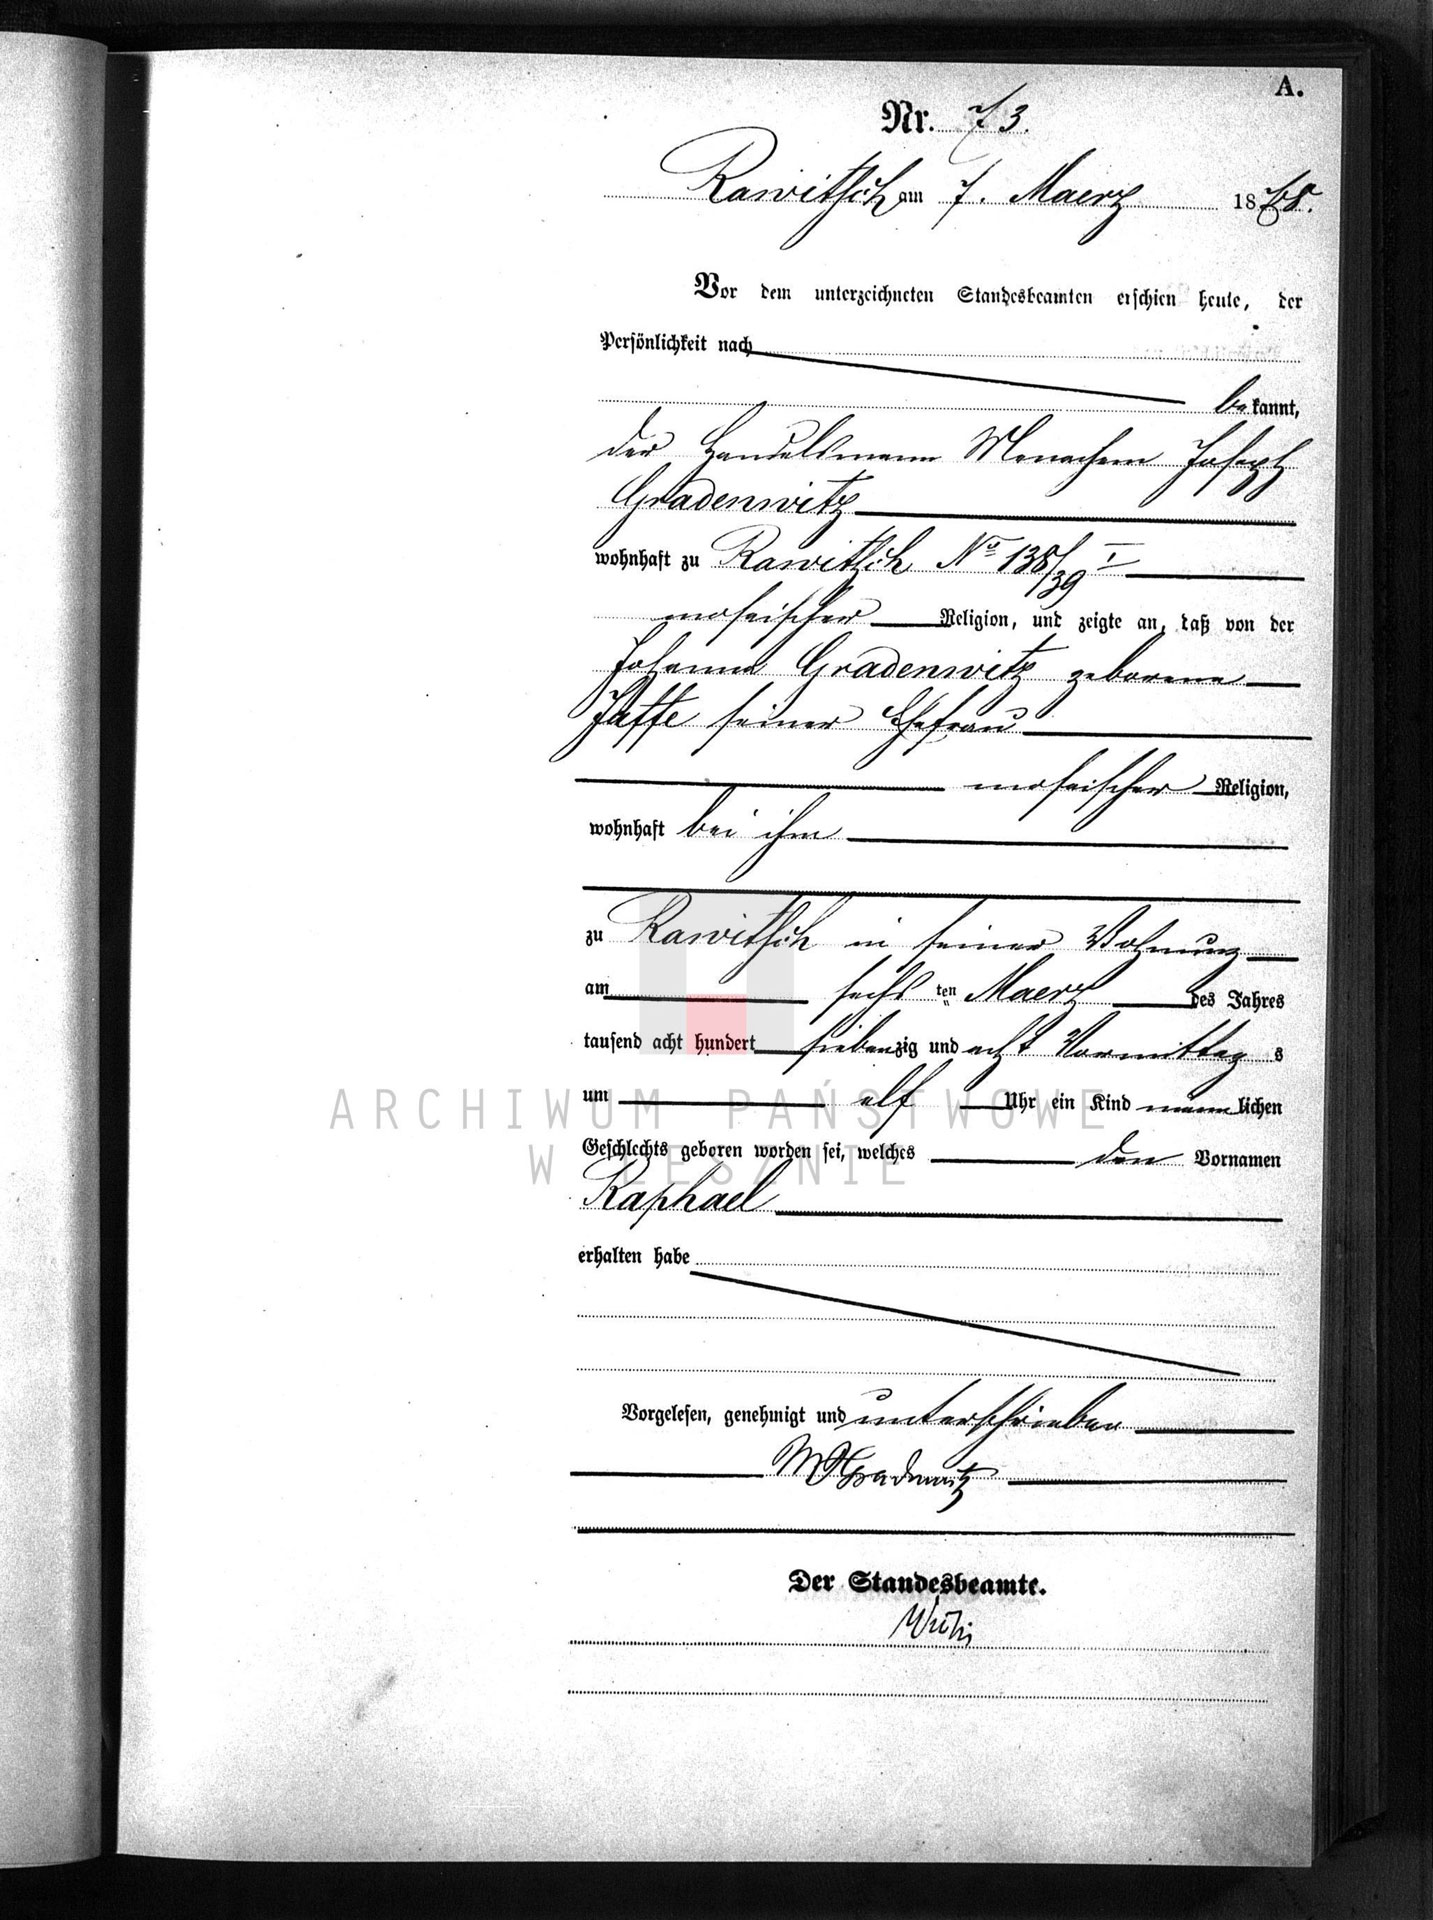 A.
Nr. 73.
Rawitsch am 7. Maerz 1878.
Vor dem unterzeichneten Standesbeamten erschien heute, der
Persönlichkeit nach
bekannt,
der Handelsmann Menachem Joseph
Gradenwitz
wohnhaft zu Rawitsch No 138/39 I
mosaischer Religion, und zeigte an, daß von der
Johanna Gradenwitz geborene
Jaffe seiner Ehefrau
mosaischer Religion,
wohnhaft bei ihm
zu Rawitsch in seiner Wohnung
am sechs ten Maerz des Jahres
tausend acht hundert siebenzig und acht Vormittags
um elf Uhr ein Kind männlichen
Geschlechts geboren worden sei, welches den Vornamen
Raphael
erhalten habe
Vorgelesen, genehmigt und unterschrieben
Gradenwitz
Der Standesbeamte.
ARCHIWUM PAŃSTWOWE
W LESZNIE